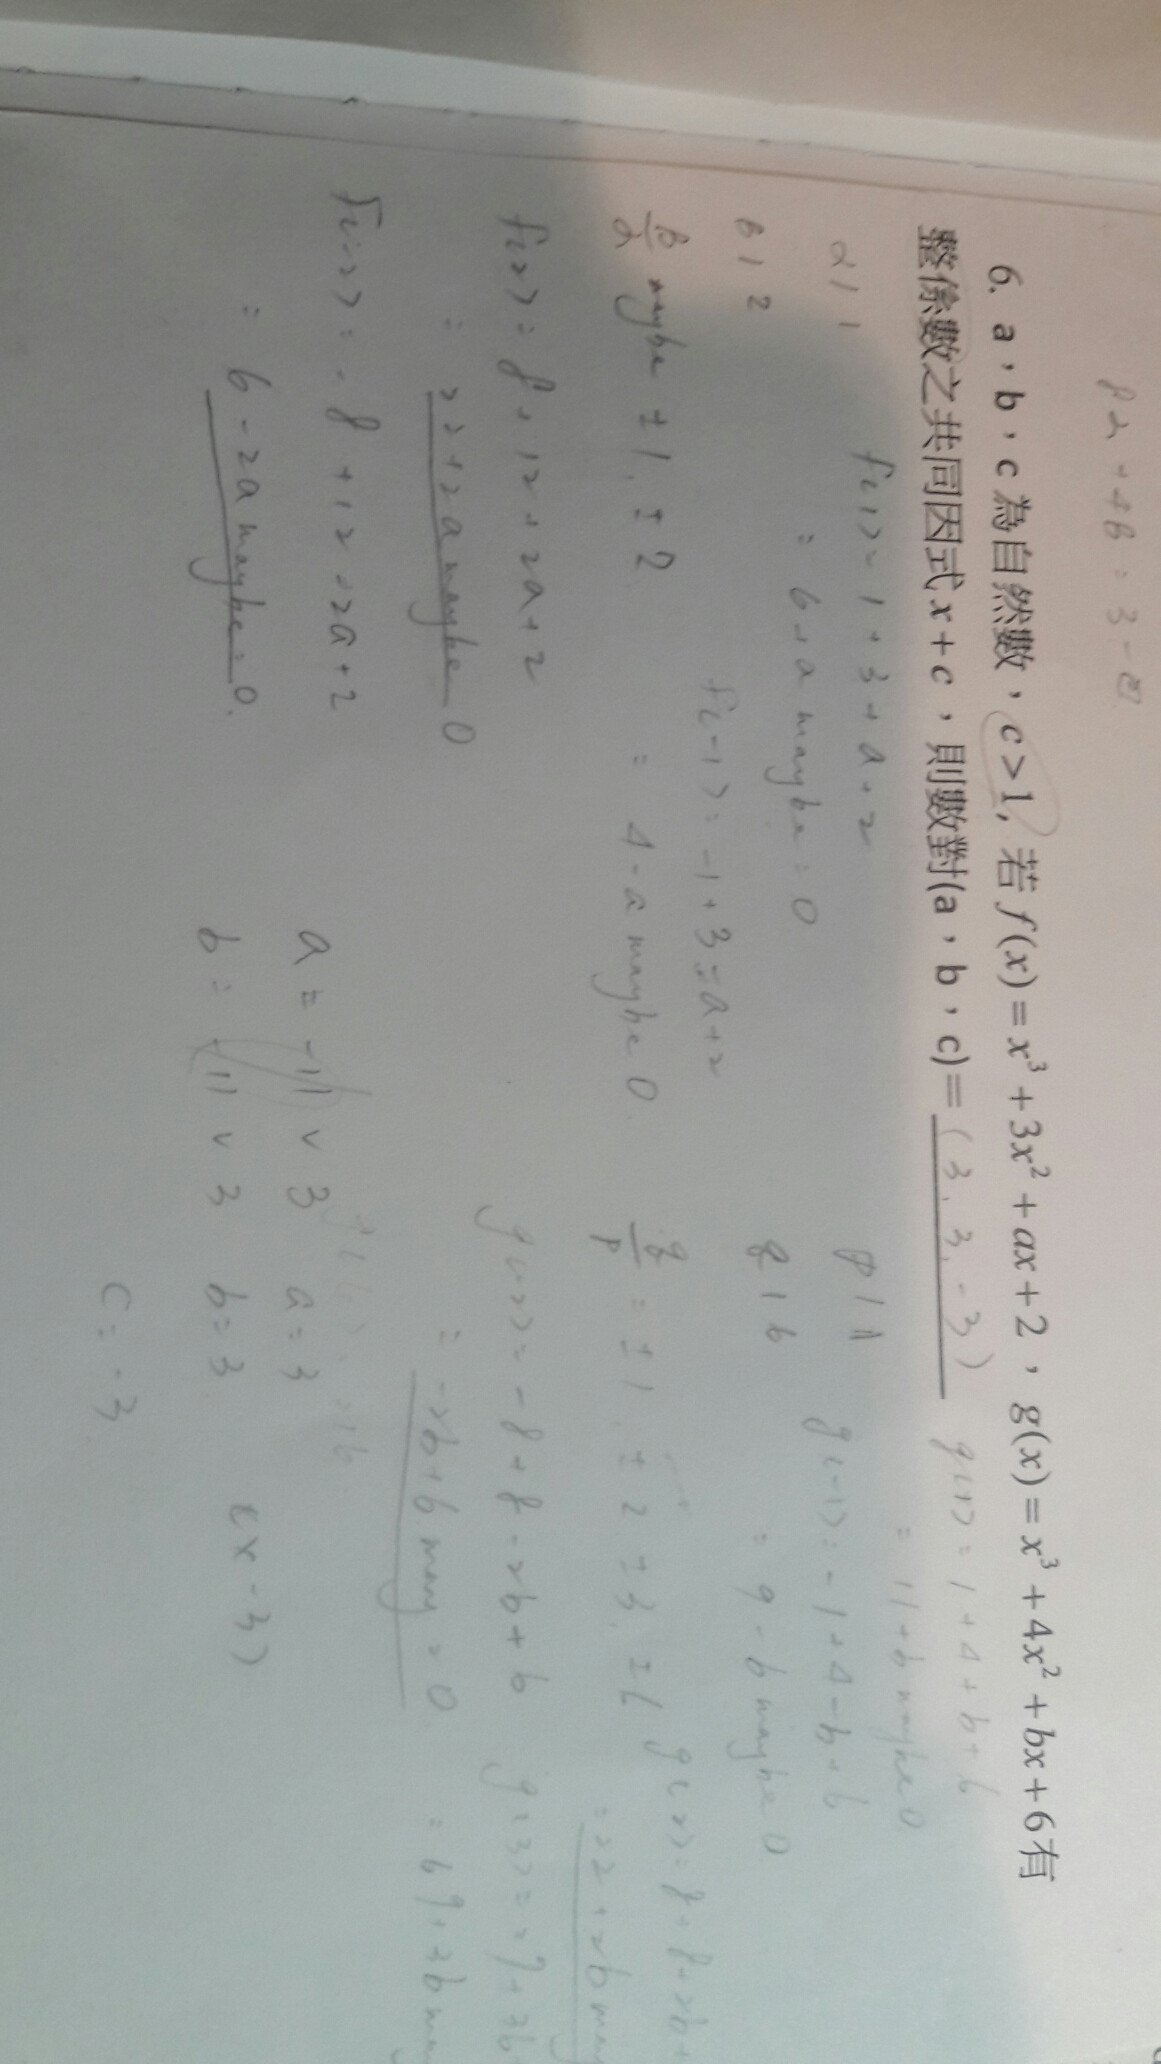 βα+4β=3-
6. a，b，c 為自然數，c>1，若 f(x)=x³+3x²+ax+2，g(x)=x³+4x²+bx+6有
整係數之共同因式 x+c，則數對(a，b，c)=(3, 3, -3)
α|1
β|2
β/α maybe ±1, ±2
f(1)=1+3+a+2
=6+a maybe=0
f(-1)=-1+3-a+2
=4-a maybe 0
f(2)=8+12+2a+2
=22+2a maybe 0
f(-2)=-8+12-2a+2
=6-2a maybe=0.
p|1
q|6
q/p=±1, ±2 ±3, ±6
g(1)=1+4+b+6
=11+b maybe 0
g(-1)=-1+4-b+6
=9-b maybe 0
g(2)=8+8+2b+
=22+2b may
g(-2)=-8+8-2b+6
=-2b+6 may=0
g(3)=27+36+
=69+3b
a=-11 v 3 a=3
b=-11 v 3 b=3
(x-3)
c=-3